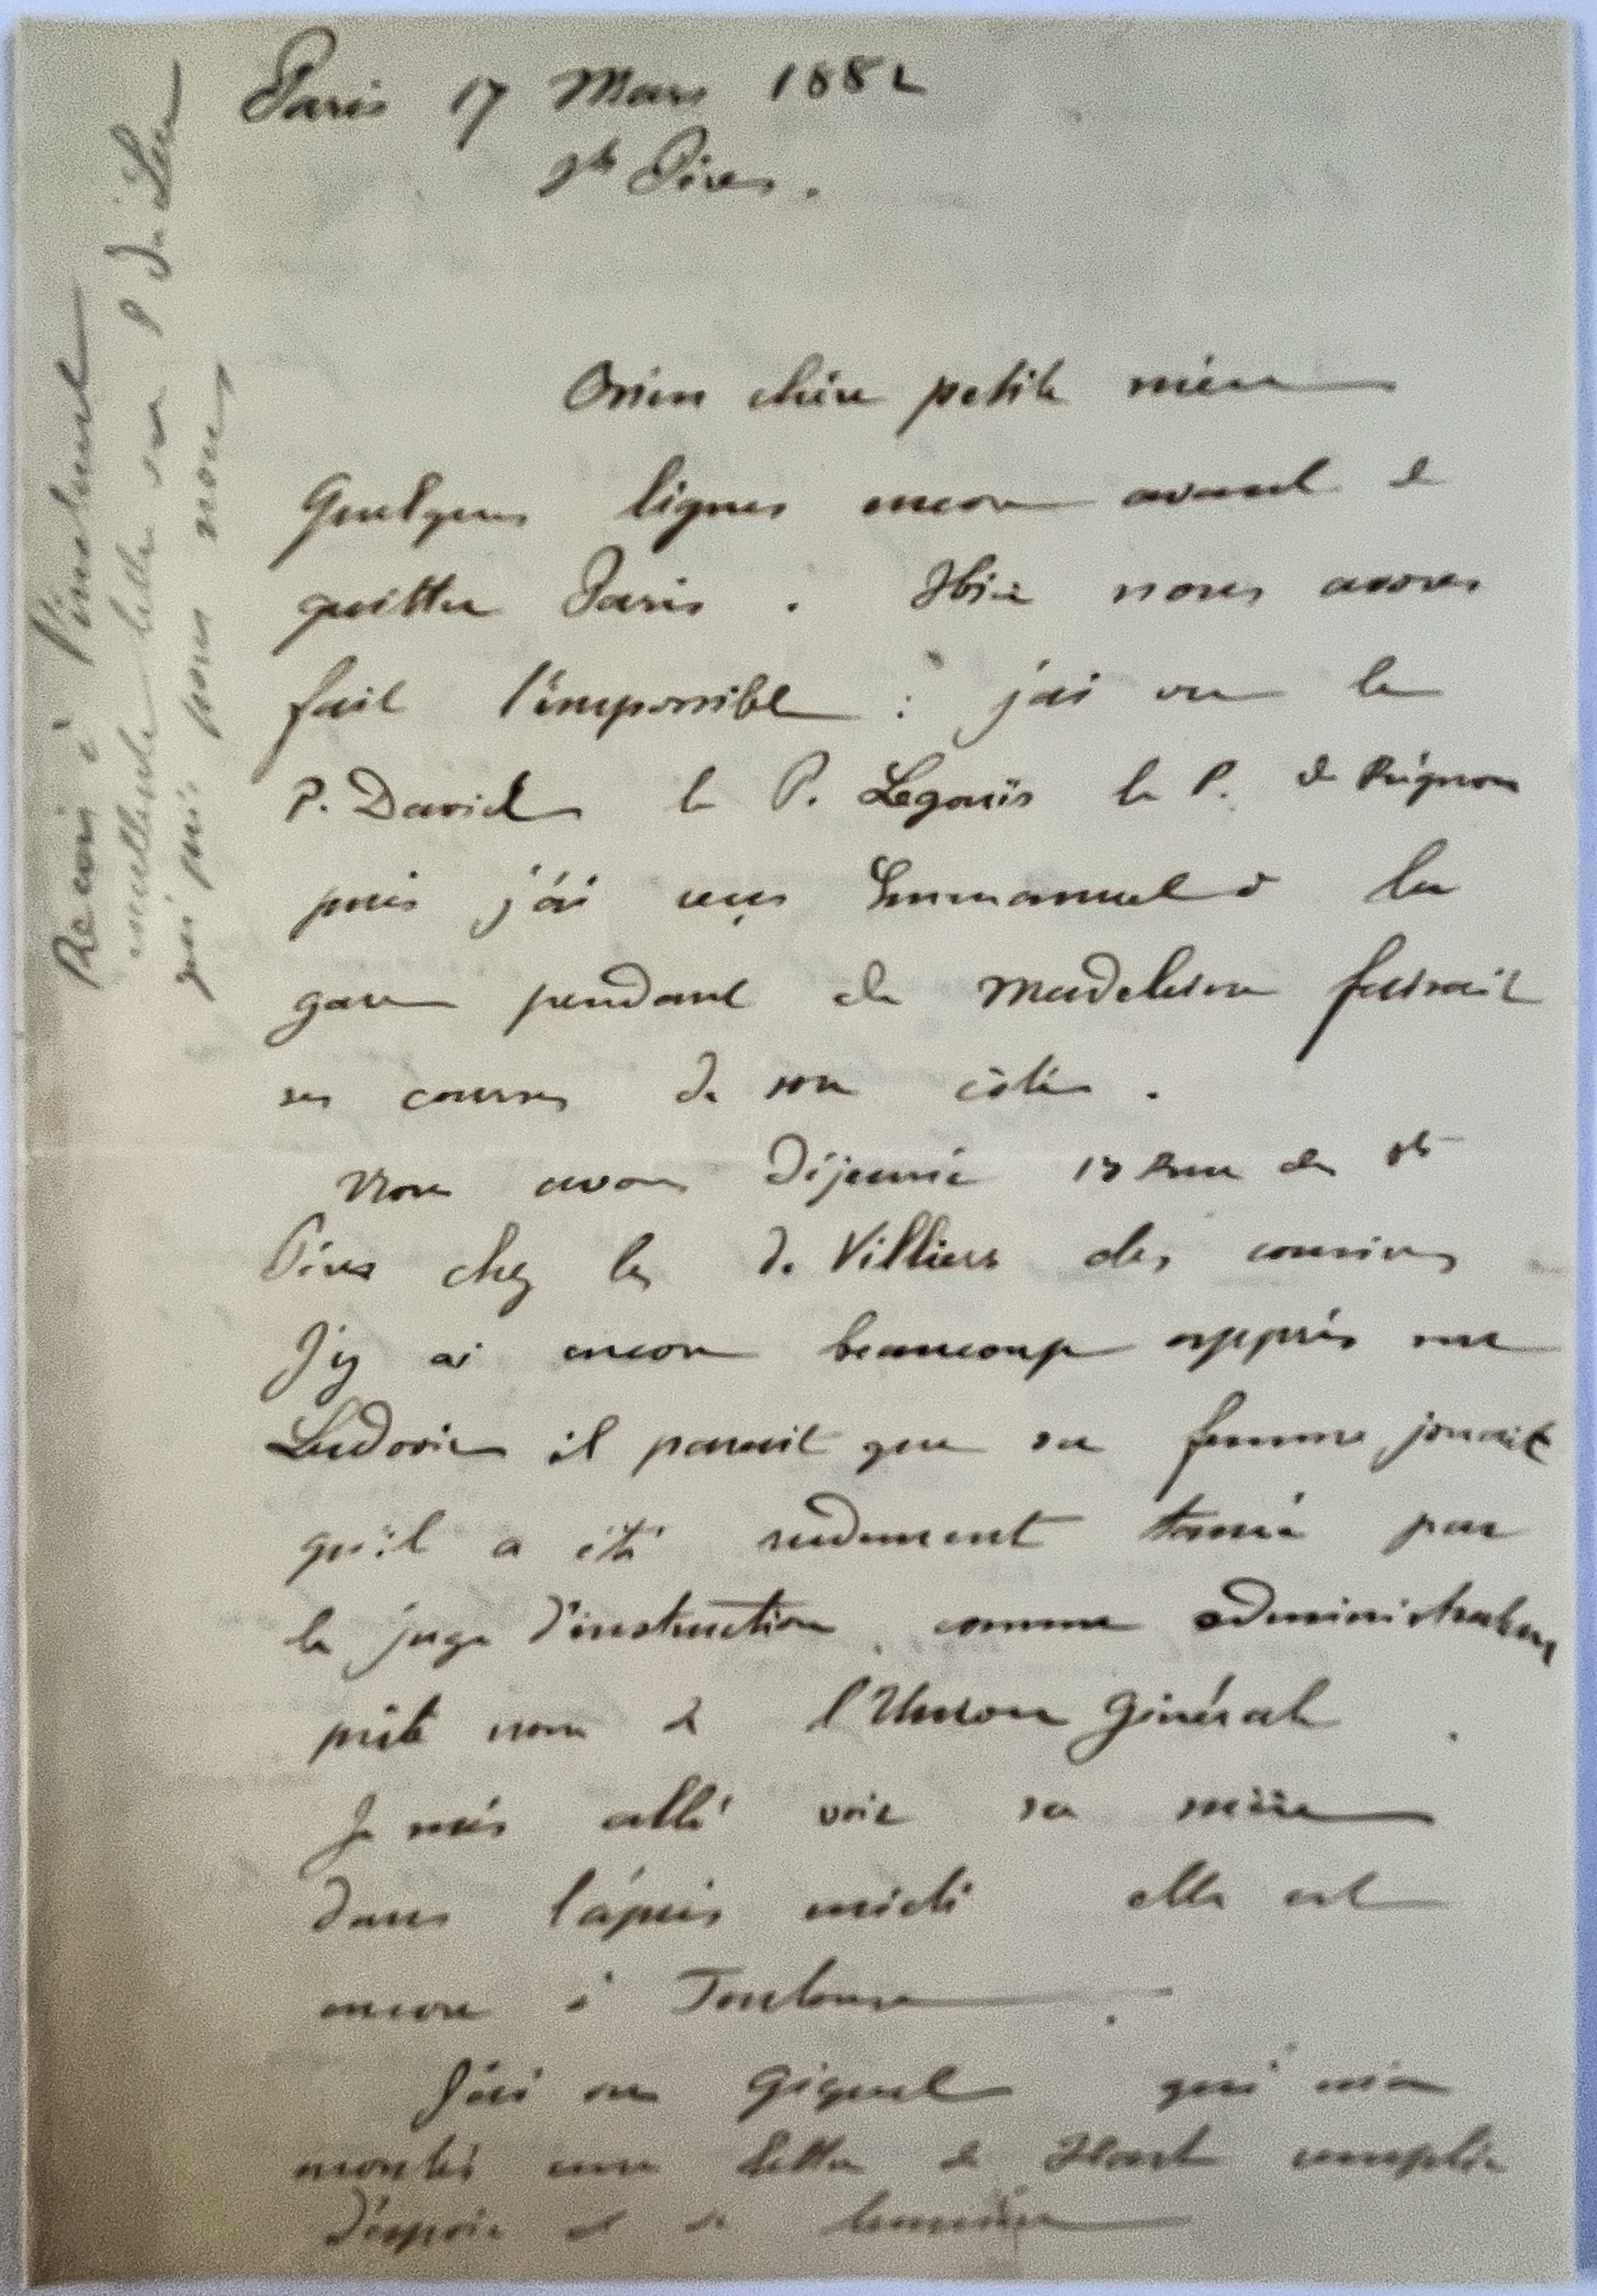 Paris 17 Mars 1882
Sts Pères.
Mien chère petite mère
Quelques lignes encore avant de
quitter Paris. Hier nous avons
fait l'impossible : j'ai vu le
P. David le P. Legouïs le P. de Régnon
puis j'ai reçu Emmanuel à la
gare pendant que Madeleine faisait
ses courses de son côté.
Nous avons déjeuné 13 Rue des Sts
Pères chez les de Villiers des cousins
J'y ai encore beaucoup appris sur
Ludovic il parait que sa femme jouait
qu'il a été rudement tancé par
le juge d'instruction comme administrateur
prête nom de l'Union Générale.
Je suis allé voir sa mère
dans l'après midi elle est
encore à Toulouse.
J'ai vu Giquel qui m'a
montré une lettre de Hart remplie
d'espoir et de lumière
Reçois à l'instant
excellente lettre du P du Lac
qui prie pour nous